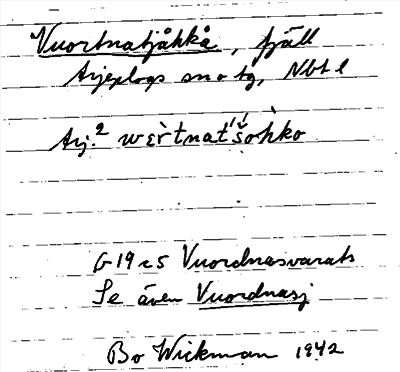 Vuortnatjåkkå, fjäll
Arjeplogs sn o tg, Nbt l
Arj.² wɛ̀rtnat'́šohko
G 19 c 5 Vuordnasvarats
Se även Vuordnasj
Bo Wickman 1942